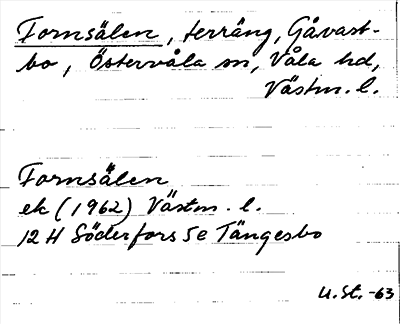 Fornsälen, terräng, Gåvast-
bo, Östervåla sn, Våla hd,
Västm. l.
Fornsälen
ek (1962) Västm. l.
12 H Söderfors 5e Tängesbo
U.St. -63